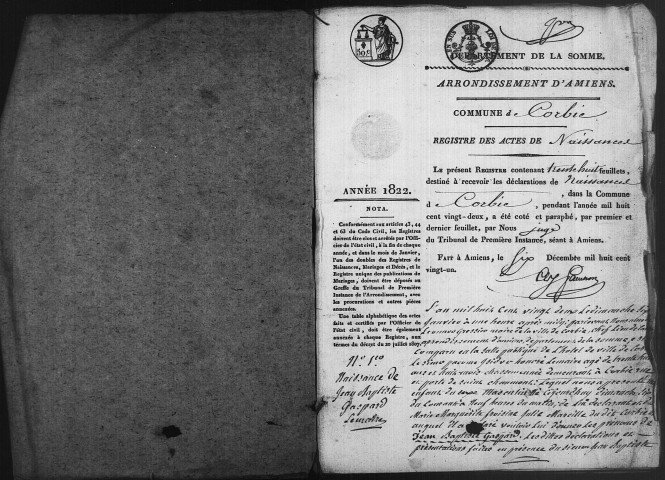 DÉPARTEMENT DE LA SOMME.
ARRONDISSEMENT D'AMIENS.
COMMUNE de Corbie
REGISTRE DES ACTES DE Naissances
Le présent REGISTRE contenant trente huit feuillets,
destiné à recevoir les déclarations de Naissances
, dans la Commune
de Corbie, pendant l'année mil huit
cent vingt-deux, a été coté et paraphé, par premier et
dernier feuillet, par Nous juge
du Tribunal de Première Instance, séant à Amiens.
FAIT à Amiens, le Six Décembre mil huit cent
vingt-un.
ANNÉE 1822.
NOTA.
Conformément aux articles 43, 44
et 63 du Code Civil, les Registres
doivent être clos et arrêtés par l'Offi-
cier de l'état civil, à la fin de chaque
année, et dans le mois de Janvier,
l'un des doubles des Registres de
Naissances, Mariages et Décès, et le
Registre unique des publications de
Mariages, doivent être déposés au
Greffe du Tribunal de Première
Instance de l'Arrondissement, avec
les procurations et autres pièces
annexées.
Une table alphabétique des actes
faits et certifiés par l'Officier de
l'état civil, doit être également
annexée à chaque Registre, aux
termes du décret du 20 juillet 1807.
N.° 1.er
Naissance de
Jean Baptiste
Gaspard
L'an mil huit cent vingt deux Le dimanche Six
Janvier à une heure après midi par devant
maire de la ville de Corbie, chef lieu de Canton
arrondissement d'amiens, département de la somme, est
Comparu en la salle publique de l'hotel de ville de Corbie
Le sieur honoré Lemaire agé de trente huit
ans demeurant à Corbie rue
et porte de Lequel nous a présenté un
enfant du sexe Masculin né
à Neuf heures du matin, de lui déclarant et de
Marie Marguerite Julie
auquel Il a déclaré vouloir Lui donner Les prénoms de
Jean Baptiste Gaspard. Lesdites déclarations et
présentations faites en présence du sieur Jean Baptiste